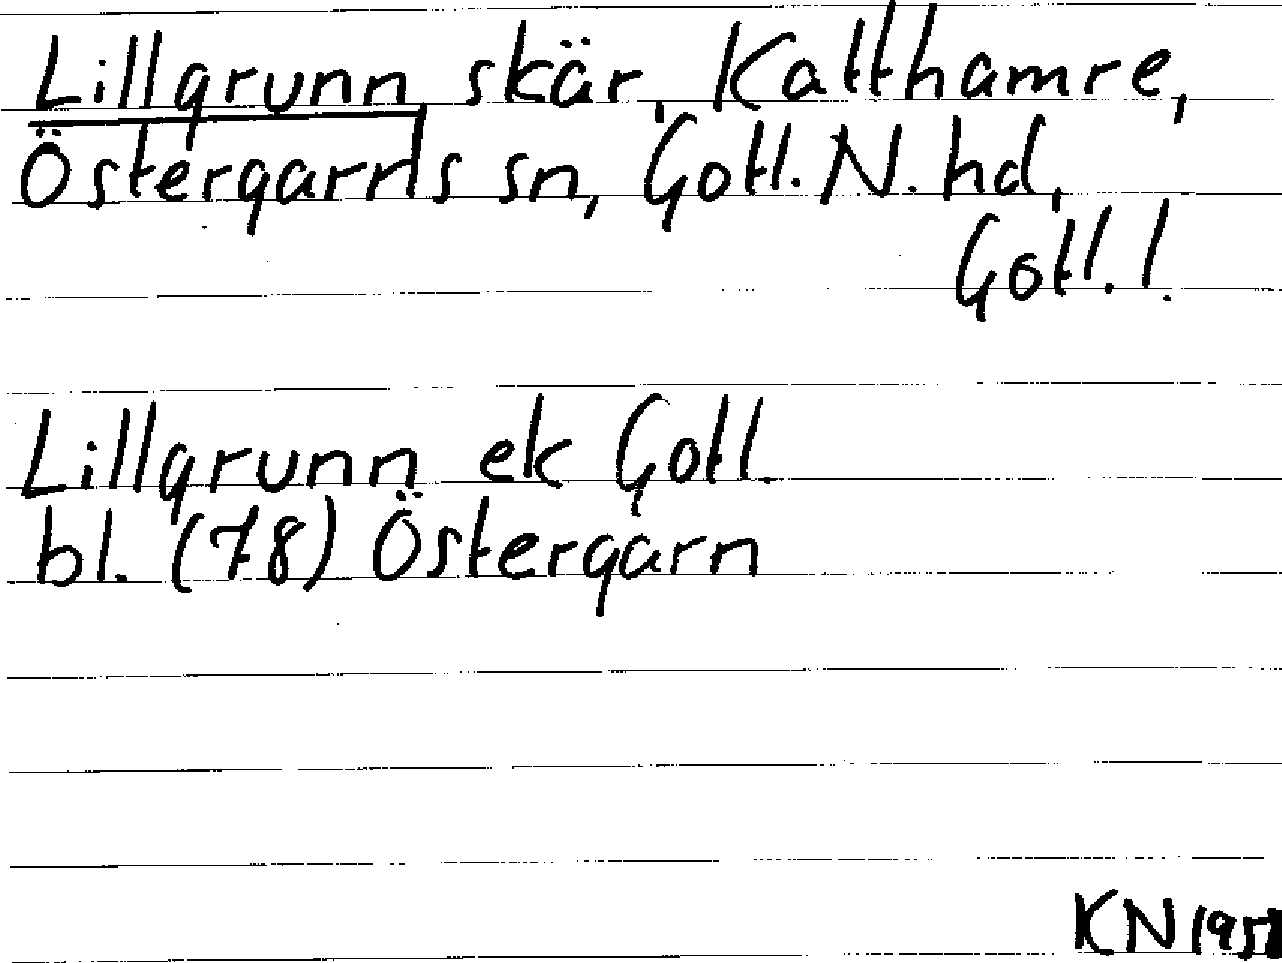 Lillgrunn, skär, Katthamre,
Östergarns sn, Gotl. N. hd,
Gotl. !
Lillgrunn ek Gotl.
bl. (78) Östergarn
KN